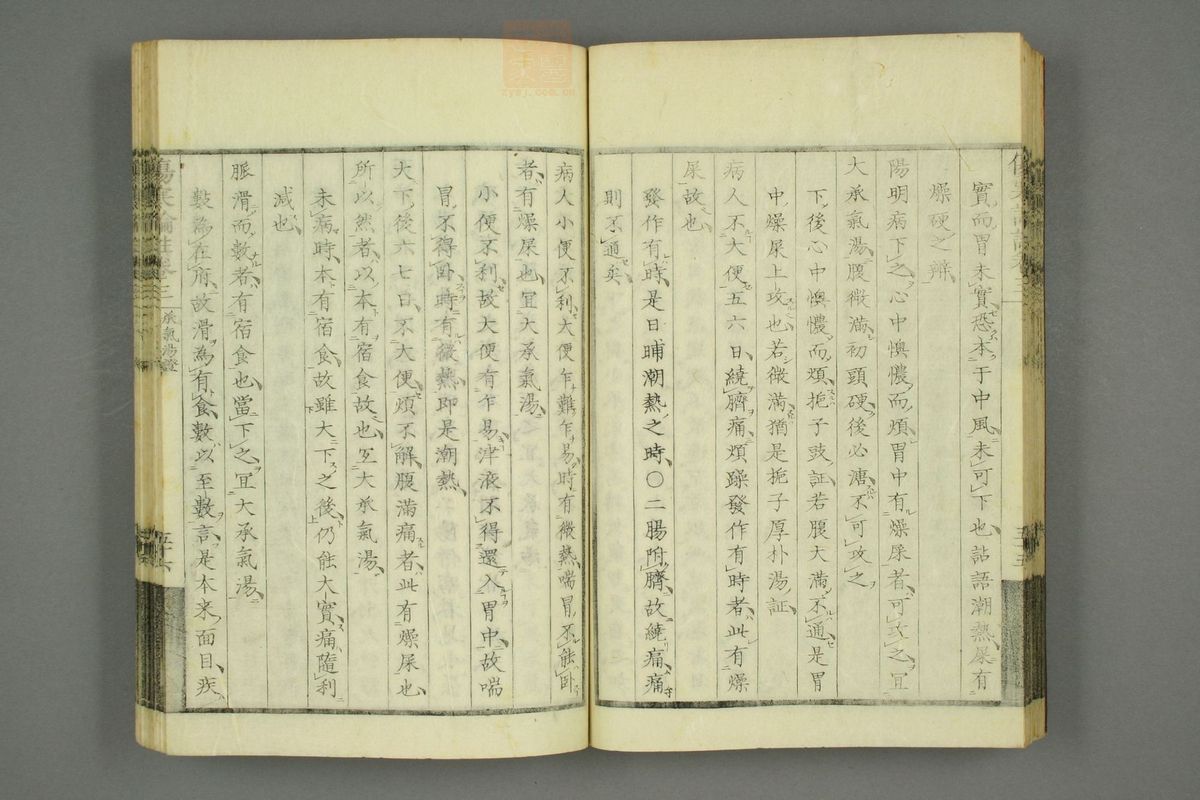 實而胃未實恐本于中風未可下也詀語潮熱屎有
燥硬之辨
陽明病下之心中懊憹而煩胃中有燥屎者可攻之宜
大承氣湯腹微滿初頭硬後必溏不可攻之
下後心中懊憹而煩扼子豉証若腹大滿不通是胃
中燥屎上攻也若微滿猶是扼子厚朴湯証
病人不大便五六日繞臍痛煩躁發作有時者此有燥
屎故也
發作有時是日晡潮熱之時〇二腸附臍故繞痛痛
則不通矣
病人小便不利大便乍難乍易時有微熱喘冒不能卧
者有燥屎也宜大承氣湯
小便不利故大便有乍易津液不得還入胃中故喘
冒不得卧時有微熱即是潮熱
大下後六七日不大便煩不解腹滿痛者此有燥屎也
所以然者以本有宿食故也宜大承氣湯
未病時本有宿食故雖大下之後仍能大實痛隨利
減也
脈滑而數者有宿食也當下之宜大承氣湯
數為在府故滑為有食數以至數言是本来面目疾
傷寒論註卷三
承氣湯證
五十六
zysj.com.cn